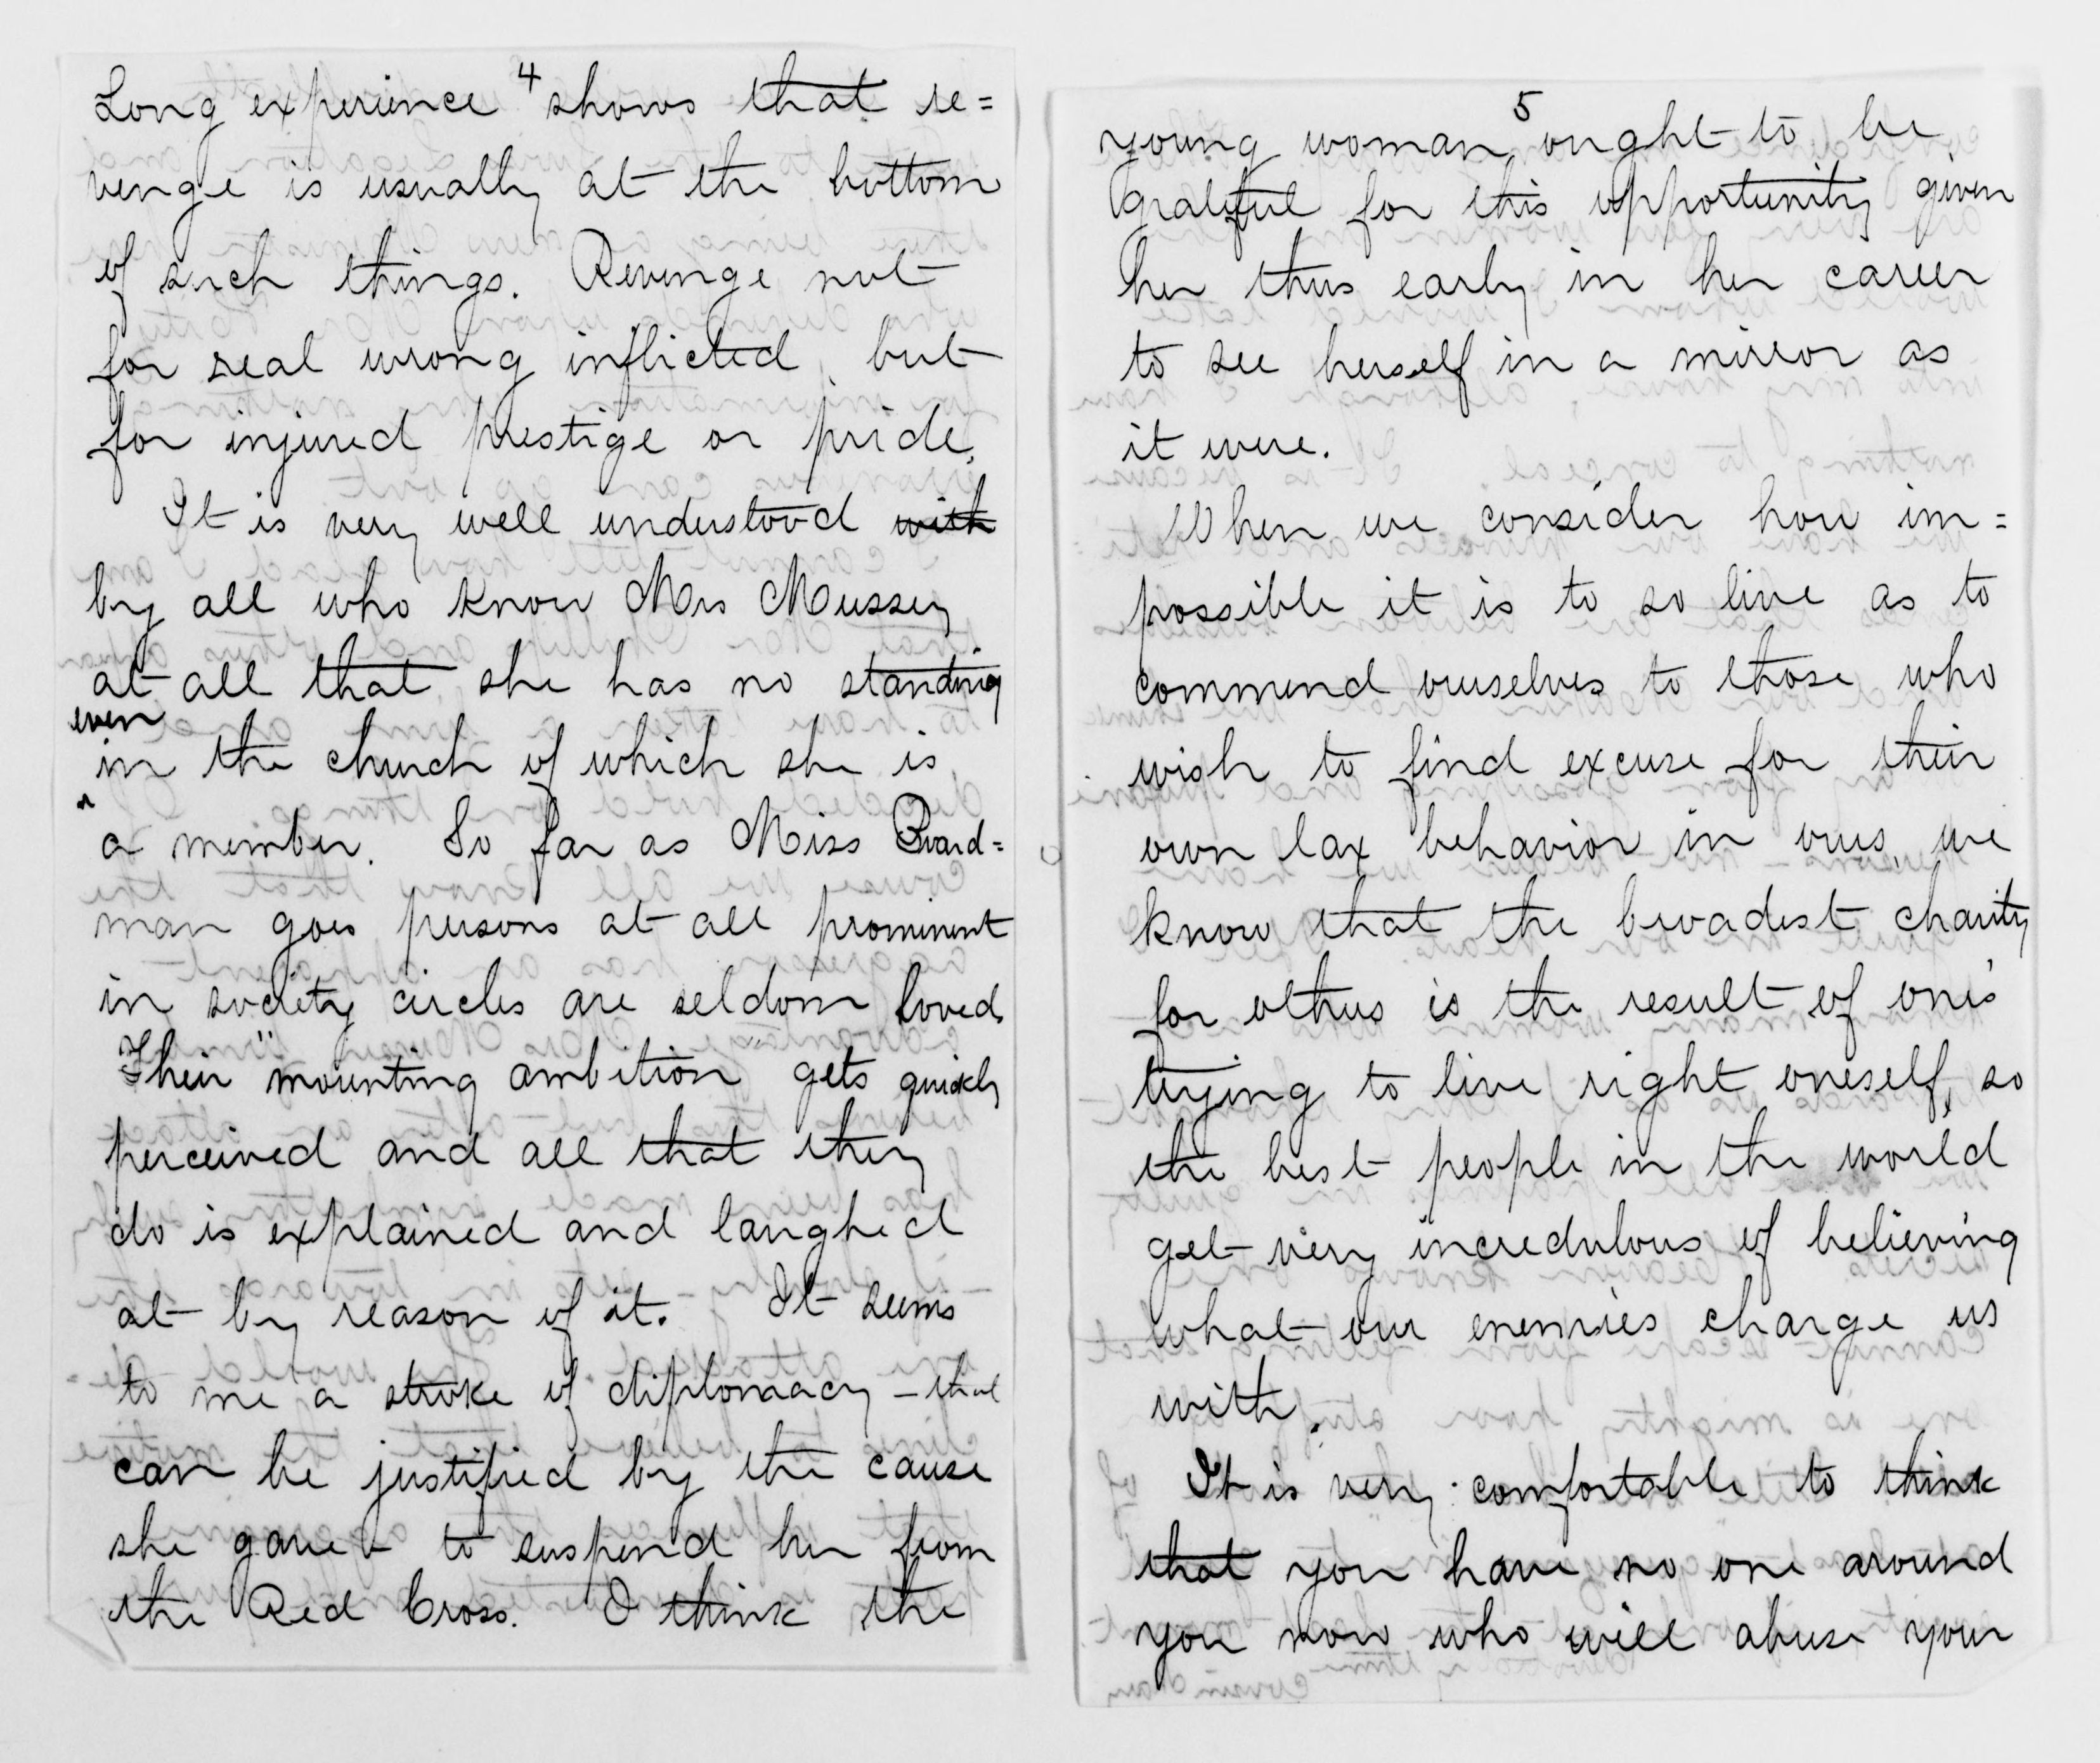 4
Long experience shows that re=
venge is usually at the bottom
of such things. Revenge not
for real wrong inflicted, but
for injured prestige or pride.
It is very well understood with
by all who know Mrs Mussey
at all that she has no standing
even
in the church of which she is
a member. So far as Miss Board=
man goes persons at all prominent
in society circles are seldom loved.
Their "mounting ambition" gets quickly
perceived and all that they
do is explained and laughed
at by reason of it. It seems
to me a stroke of diplomacy - that
can be justified by the cause
she gave - to suspend her from
the Red Cross. I think the
5
young woman ought to be
grateful for this opportunity given
her thus early in her career
to see herself in a mirror as
it were.
When we consider how im=
possible it is to so live as to
commend ourselves to those who
wish to find excuse for their
own lax behavior in ours, we
know that the broadest charity
for others is the result of one's
trying to live right oneself, so
the best people in the world
get very incredulous of believing
what our enemies charge us
with.
It is very comfortable to think
that you have no one around
you now who will abuse your